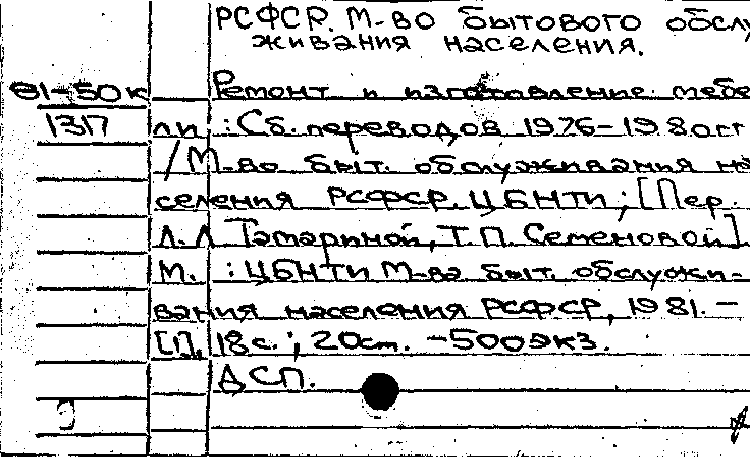 РСФСР. М-ВО бытового обслу
живания населения.
81-50к Ремонт и изготовление мебе
1317 ли : Сб. переводов 1976-1980гг
/ М-во быт. обслуживания на
селения РСФСР. ЦБНТИ ; [Пер.
Л. Л Татариной, Т. П. Семеновой]
М. : ЦБНТИ М-ва быт. обслужи-
вания населения РСФСР, 1981. –
[1], 18 с. ; 20 см. – 500 экз.
ДСП.